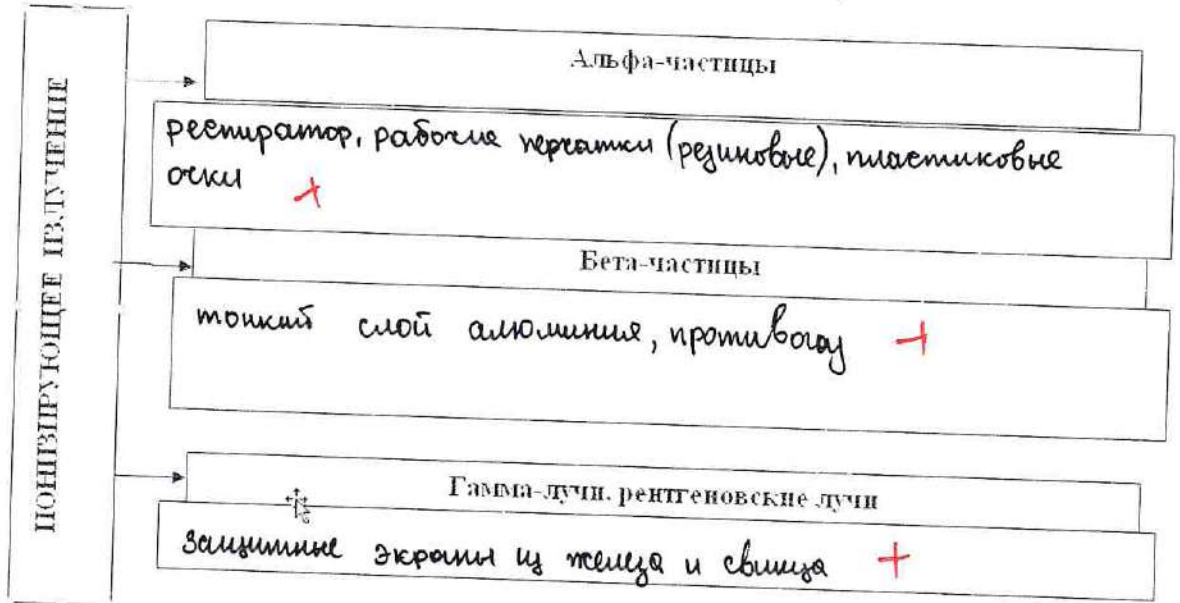 ИОНИЗИРУЮЩЕЕ ИЗЛУЧЕНИЕ
Альфа-частицы
респиратор, рабочие перчатки (резиновые), пластиковые
очки +
Бета-частицы
тонкий слой алюминия, противогаз +
Гамма-лучи, рентгеновские лучи
защитные экраны из железа и свинца +